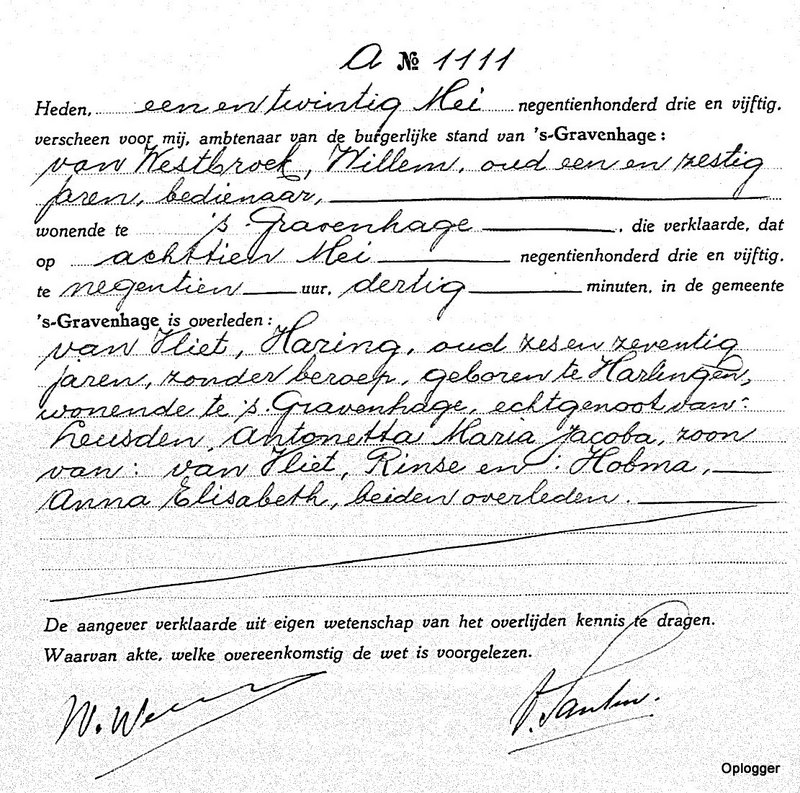 A № 1111
Heden, een en twintig Mei negentienhonderd drie en vijftig,
verscheen voor mij, ambtenaar van de burgerlijke stand van 's-Gravenhage:
van Westbroek, Willem, oud een en zestig
jaren, bedienaar,
wonende te 's Gravenhage, die verklaarde, dat
op achttien Mei negentienhonderd drie en vijftig,
te negentien uur, dertig minuten, in de gemeente
's-Gravenhage is overleden:
van Vliet, Haring, oud zes en zeventig
jaren, zonder beroep, geboren te Harlingen,
wonende te 's Gravenhage, echtgenoot van:
Leusden, Antonetta Maria Jacoba, zoon
van: van Vliet, Rinse en: Hobma,
Anna Elisabeth, beiden overleden.
De aangever verklaarde uit eigen wetenschap van het overlijden kennis te dragen.
Waarvan akte, welke overeenkomstig de wet is voorgelezen.
Oplogger